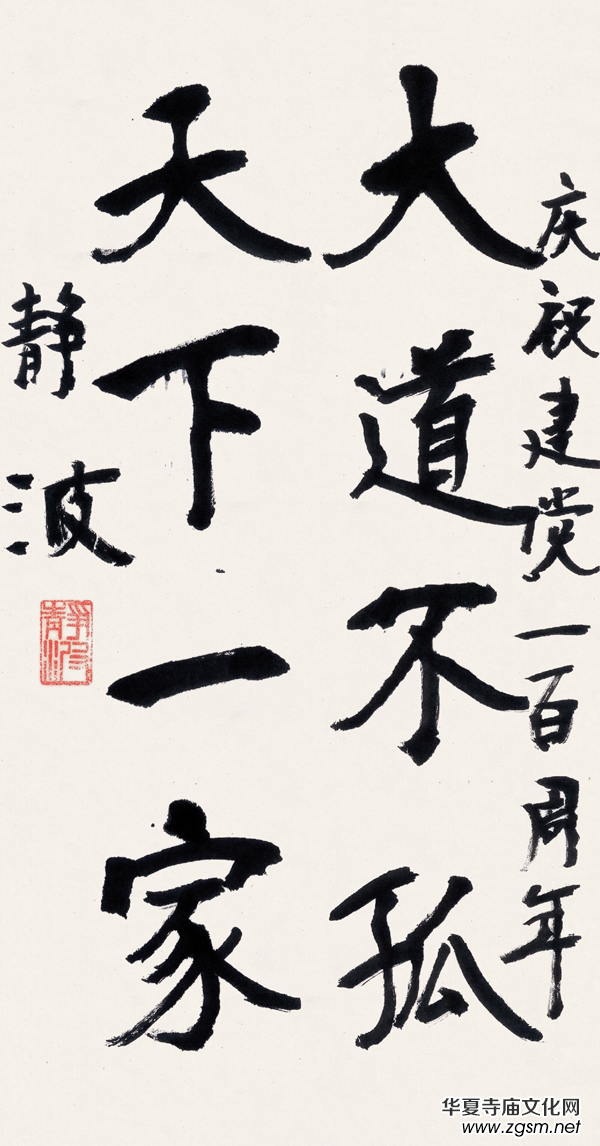 庆祝建党一百周年
大道不孤
天下一家
静波
华夏寺庙文化网
www.zgsm.net